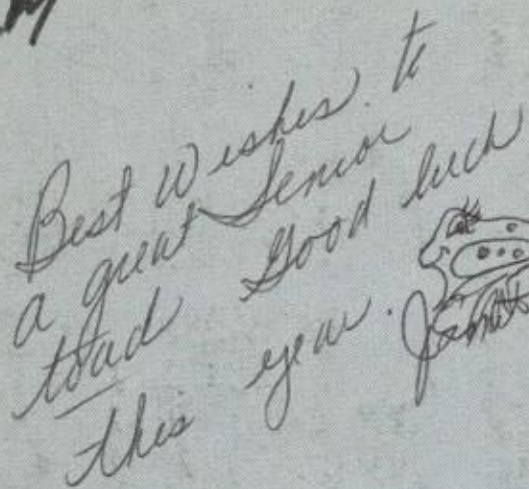 Best Wishes to
a great Senior
toad Good luck
this year.